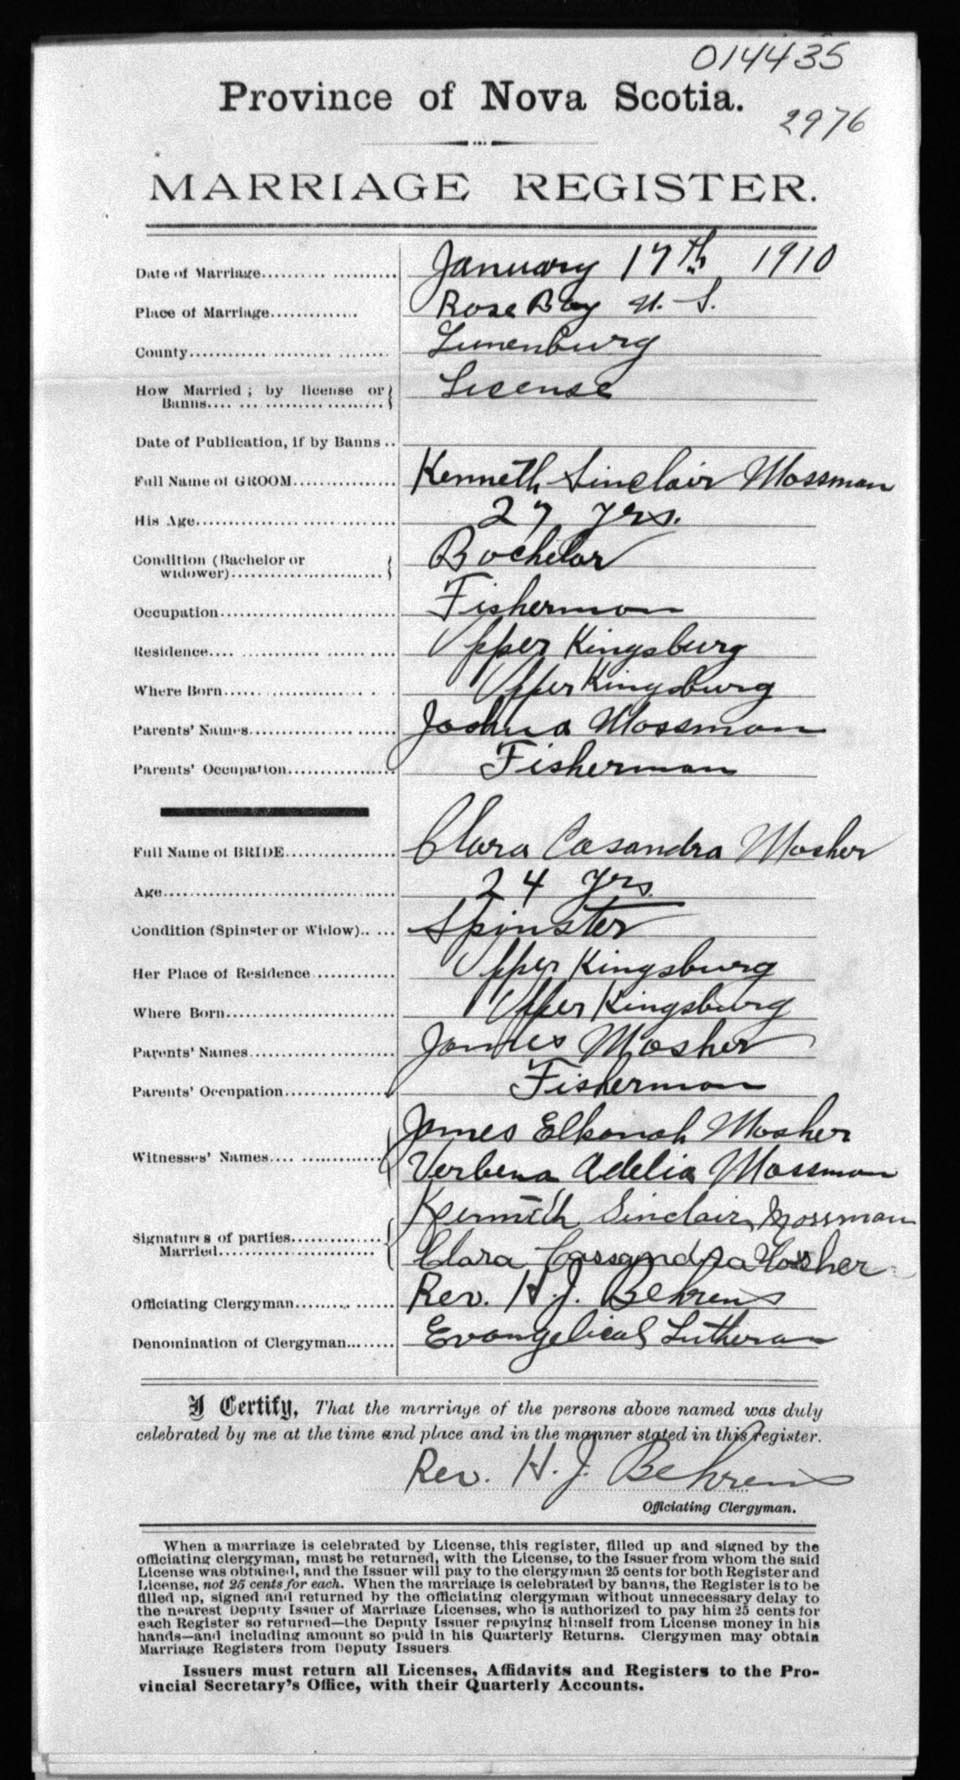 014435
Province of Nova Scotia.
2976
MARRIAGE REGISTER.
Date of Marriage.................... January 17th 1910
Place of Marriage.............. Rose Bay N. S.
County.................... Lunenburg
How Married; by license or
Banns.................... License
Date of Publication, if by Banns ..
Full Name of GROOM............... Kenneth Sinclair Mossman
His Age.................... 27 yrs.
Condition (Bachelor or
widower).................... Bachelor
Occupation.................... Fisherman
Residence.................... Upper Kingsburg
Where Born.................... Upper Kingsburg
Parents' Names.................... Joshua Mossman
Parents' Occupation............... Fisherman
Full Name of BRIDE............... Clara Casandra Mosher
Age.................... 24 yrs.
Condition (Spinster or Widow)...... Spinster
Her Place of Residence ............ Upper Kingsburg
Where Born.................... Upper Kingsburg
Parents' Names.................... James Mosher
Parents' Occupation............... Fisherman
James Elkanah Mosher
Witnesses' Names.................... Verbena Adelia Mossman
Kenneth Sinclair Mossman
Signatures of parties...............
Married.................... Clara Cassandra Mosher
Officiating Clergyman.............. Rev. H. J. Behrens
Denomination of Clergyman........ Evangelical Lutheran
I Certify, That the marriage of the persons above named was duly
celebrated by me at the time and place and in the manner stated in this register.
Rev. H. J. Behrens
Officiating Clergyman.
When a marriage is celebrated by License, this register, filled up and signed by the
officiating clergyman, must be returned, with the License, to the Issuer from whom the said
License was obtained, and the Issuer will pay to the clergyman 25 cents for both Register and
License, not 25 cents for each. When the marriage is celebrated by banns, the Register is to be
filled up, signed and returned by the officiating clergyman without unnecessary delay to
the nearest Deputy Issuer of Marriage Licenses, who is authorized to pay him 25 cents for
each Register so returned—the Deputy Issuer repaying himself from License money in his
hands—and including amount so paid in his Quarterly Returns. Clergymen may obtain
Marriage Registers from Deputy Issuers
Issuers must return all Licenses, Affidavits and Registers to the Pro-
vincial Secretary's Office, with their Quarterly Accounts.